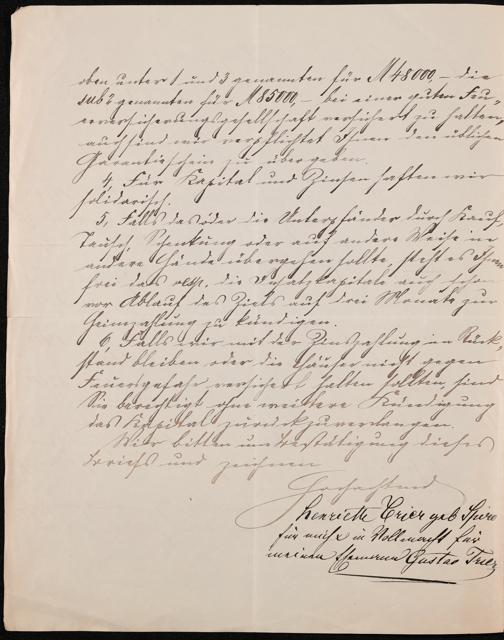 oben unter 1 und 3 genannten für M 48000,– die
sub 2 genannten für M 85000,– bei einer guten Feu-
erversicherungsgesellschaft versichert zu halten,
auch sind wir verpflichtet Ihnen den üblichen
Garantieschein zu übergeben.
4, Für Kapital und Zinsen haften wir
solidarisch.
5, Falls das oder die Unterpfänder durch Kauf,
Tausch, Schenkung oder auf andere Weise in
andere Hände übergehen sollte, steht es Ihnen
frei das resp. die Insatzkapitale auch schon
vor Ablauf des Ziels auf drei Monate zur
Heimzahlung zu kündigen.
6, Falls wir mit der Zinszahlung in Rück-
stand bleiben oder die Häuser nicht gegen
Feuersgefahr versichert halten sollten, sind
Sie berechtigt ohne weitere Kündigung
das Kapital zurückzuverlangen.
Wir bitten um Bestätigung dieses
Briefs und zeichnen
Hochachtend
Henriette Trier geb Spiro
für mich & in Vollmacht für
meinen Ehemann Gustav Trier